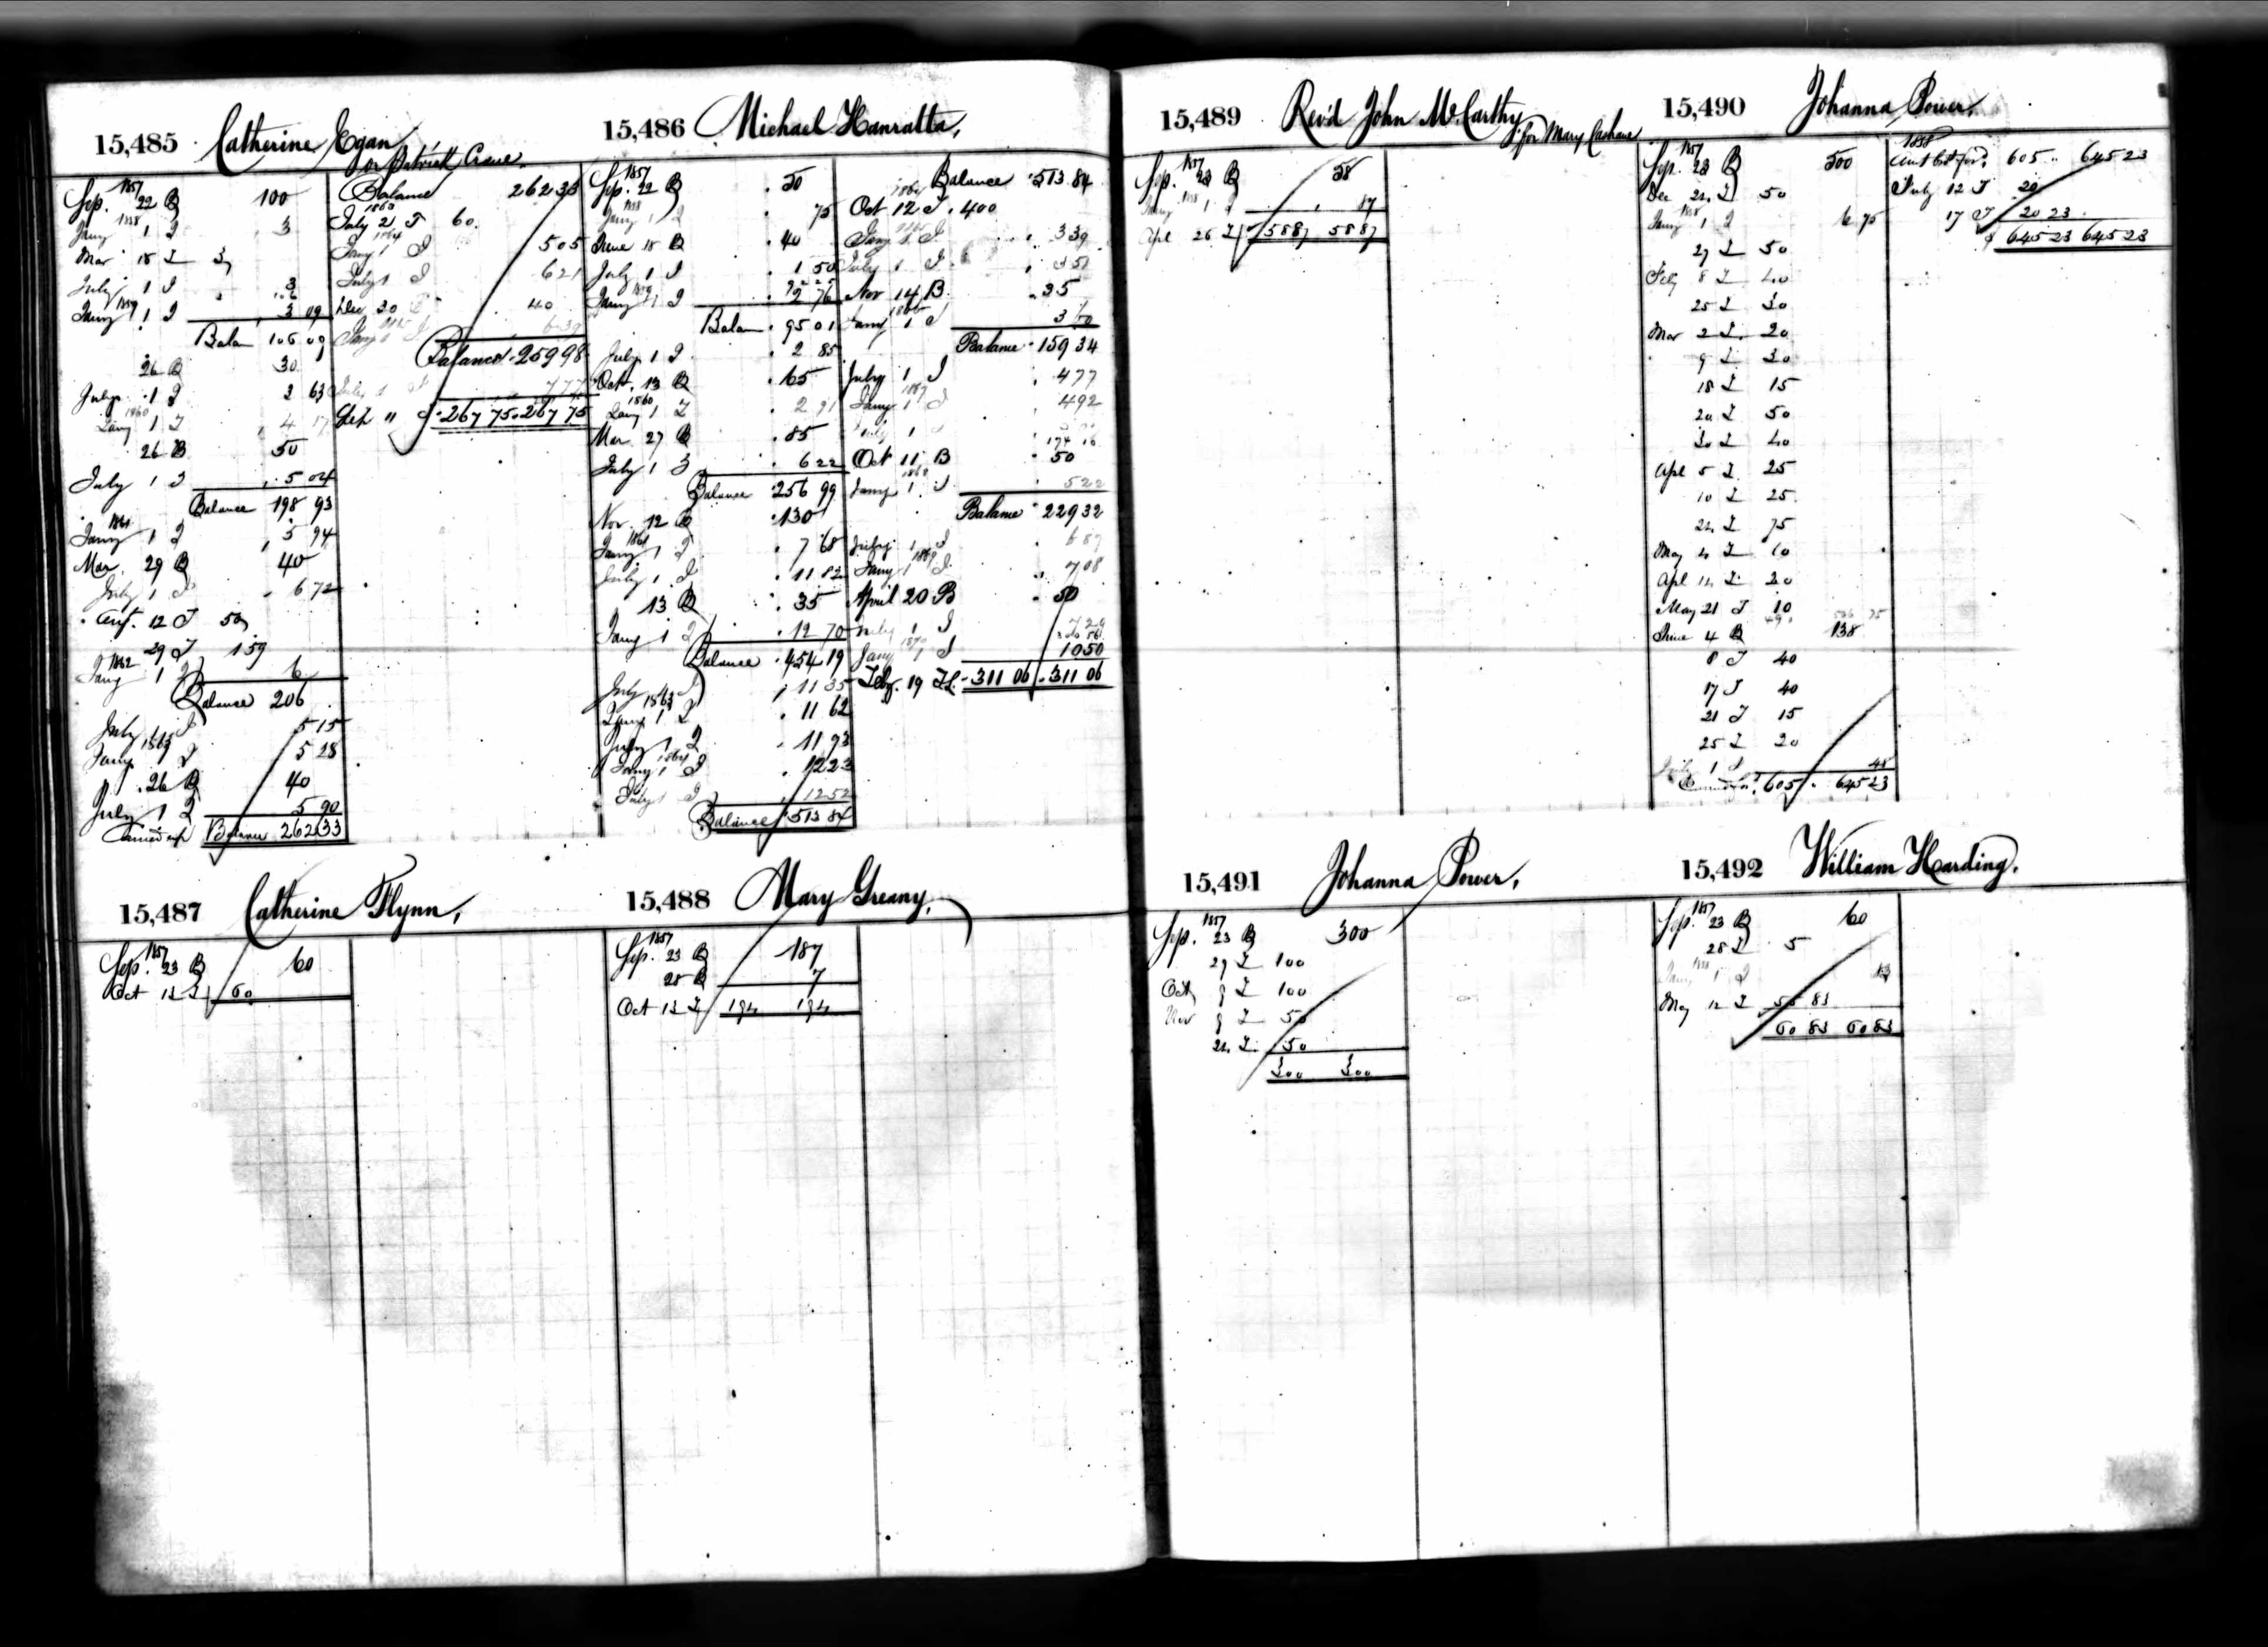 15,485 Catherine Egan
or Patrick Crane
1857
Sep. 22 B 100
1858
Jany 1 I 3
Mar 18 I
July 1 I 3
1859
Jany 1 I 3 09
Balan 106 09
26 B 30
July 1 I 2 63
1860
Jany 1 I 4
26 B 50
July 1 I 5 04
Balance 198 93
1861
Jany 1 I 5 94
Mar 29 B 40
July 1 I 6 72
12 I 50
29 I 159
1862
Jany 1 I 6
Balance 206
July 1 I 5 15
1863
Jany 1 I 5 28
26 B 40
July 1 I 5 90
Carried up Balance 262 33
Balance 262 33
July 21 I 60
1864
Jany 1 I 5 05
July 1 I 6 21
Dec 30 40
Jany 1 I 6 39
Balance 259 98
July 1 I 7 77
Sep " 267 75 267 75
15,486 Michael Hanratta,
1857
Sep. 22 B 50
1858
Jany 1 I 75
June 18 B 40
July 1 I 1 50
1859
Jany 1 I 2 76
Balan 95 01
July 1 I 2 85
Oct. 13 B 65
1860
Jany 1 I 2 91
Mar 27 B 85
July 1 I 6 22
Balance 256 99
Nov. 12 B 130
1861
Jany 1 I 7 68
July 1 I 11 82
13 B 35
Jany 1 I 12 70
Balance 454 19
July 1 I 11 35
1863
Jany 1 I 11 62
July 1 I 11 93
1864
Jany 1 I 12 23
July 1 I 12 52
Balance 513 84
Balance 513 84
Oct 12 I 400
Jany 1 I 3 39
July 1 I 3 51
Nov 14 B 35
1866
Jany 1 I 3 60
Balance 159 34
July 1 I 4 77
1867
Jany 1 I 4 92
July 1 I
174 16
Oct 11 B 50
1868
Jany 1 I 5 22
Balance 229 32
July 1 I 6 87
1869
Jany 1 I 7 08
April 20 B 50
July 1 I 7 29
1870
Jany 1 I 10 50
Feby. 19 311 06 311 06
15,487 Catherine Flynn,
1857
Sep. 23 B 60
Oct 13 I 60
15,488 Mary Greany,
1857
Sep. 23 B 187
28 B 7
Oct 13 I 194 194
15,489 Rev'd John McCarthy
for Mary Cashane
1857
Sep. 23 B 58
1858
Jany 1 I 87
Apl 26 I 58 87 58 87
15,490 Johanna Power,
1857
Sep. 23 B 500
Dec 24 I 50
1858
Jany 1 I 6 75
27 I 50
Feby 8 I 40
25 I 30
Mar 2 I 20
9 I 30
18 I 15
20 I 50
30 I 40
Apl 5 I 25
10 I 25
24 I 75
May 4 I 10
Apl 14 I 20
May 21 I 10
June 4 B 138
8 I 40
17 I 40
21 I 15
25 I 20
July 1 I 48
605 645 23
1858
Amt bt for. 605 " 645 23
July 12 I 20
17 I 20 23
645 23 645 23
15,491 Johanna Power,
1857
Sep. 23 B 300
29 I 100
Oct 9 I 100
Nov 9 I 50
24 I 50
300 300
15,492 William Harding.
1857
Sep. 23 B 60
28 I 5
1858
Jany 1 I 83
May 12 I 55 83
60 83 60 83